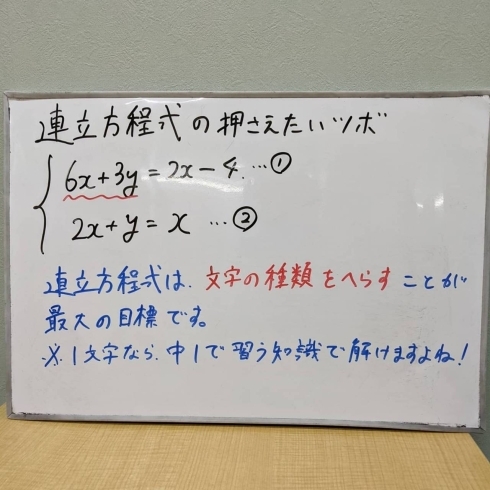 連立方程式の押さえたいツボ
6x+3y=2x-4…①
2x+y=x …②
連立方程式は、文字の種類をへらすことが
最大の目標です。
※1文字なら、中1で習う知識で解けますよね!